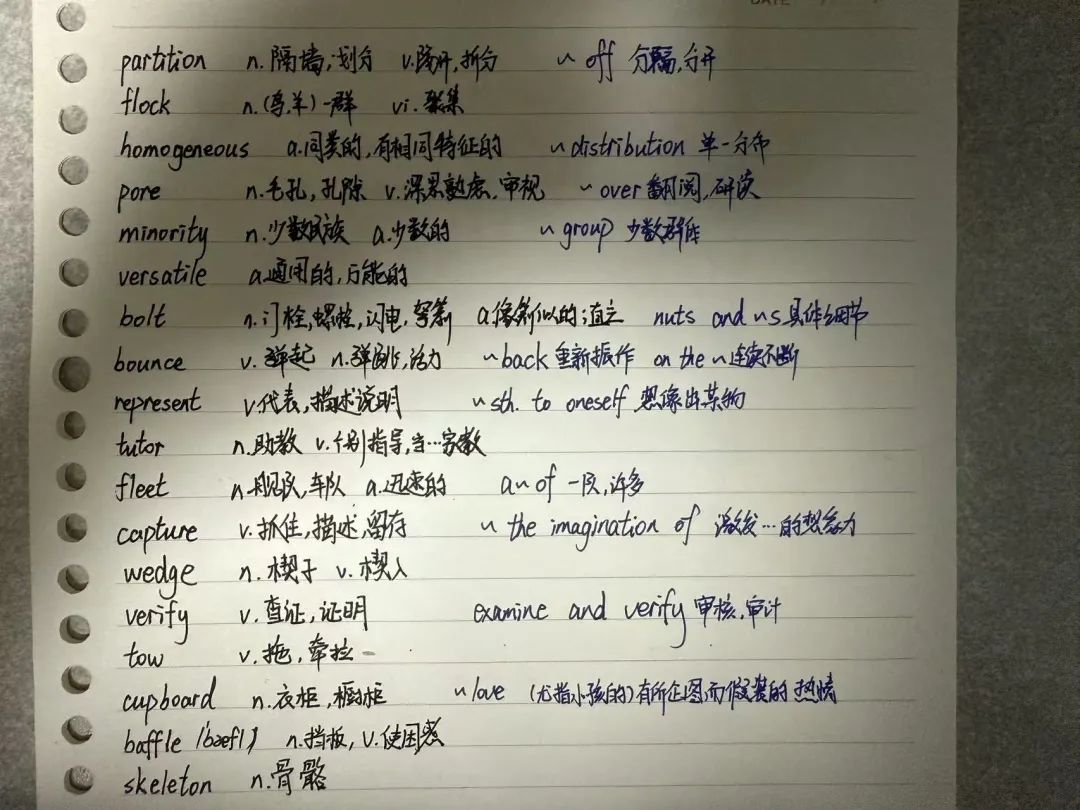 DATE
partition n.隔墙,划分 v.隔开,拆分 ~ off 分隔,分开
flock n.(鸟,羊)一群 vi.聚集
homogeneous a.同类的,有相同特征的 ~distribution 单一分布
pore n.毛孔,孔隙 v.深思熟虑,审视 ~over 翻阅,研读
minority n.少数民族 a.少数的 ~group 少数群体
versatile a.通用的,万能的
bolt n.门栓,螺栓,闪电,弩箭 a.像箭似的;直立 nuts and ~s 具体细节
bounce v.弹起 n.弹跳,活力 ~back 重新振作 on the ~ 连续不断
represent v.代表,描述说明 ~sth. to oneself 想像出某物
tutor n.助教 v.个别指导,当…家教
fleet n.舰队,车队 a.迅速的 a~of 一队,许多
capture v.抓住,描述,留存 ~ the imagination of 激发…的想象力
wedge n.楔子 v.楔入
verify v.查证,证明 examine and verify 审核,审计
tow v.拖,牵拉
cupboard n.衣柜,橱柜 ~love (尤指小孩的)有所企图而假装的热情
baffle /bæfl/ n.挡板, v.使困惑
skeleton n.骨骼